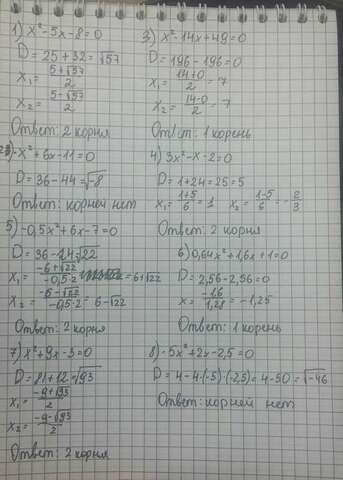 1) x² - 5x - 8 = 0
D = 25 + 32 = √57
x₁ = (5+√57)/2
x₂ = (5-√57)/2
Ответ: 2 корня
3) x² - 14x + 49 = 0
D = 196 - 196 = 0
x₁ = (14+0)/2 = 7
x₂ = (14-0)/2 = 7
Ответ: 1 корень
2) -x² + 6x - 11 = 0
D = 36 - 44 = √-8
Ответ: корней нет
4) 3x² - x - 2 = 0
D = 1 + 24 = 25 = 5
x₁ = (1+5)/6 = 1 x₂ = (1-5)/6 = -2/3
Ответ: 2 корня
5) -0,5x² + 6x - 7 = 0
D = 36 - 14 = √22
x₁ = (-6+√22)/(-0,5·2) = 6+√22
x₂ = (-6-√22)/(-0,5·2) = 6-√22
Ответ: 2 корня
6) 0,64x² + 1,6x + 1 = 0
D = 2,56 - 2,56 = 0
x = (-1,6)/1,28 = -1,25
Ответ: 1 корень
7) x² + 9x - 3 = 0
D = 81 + 12 = √93
x₁ = (-9+√93)/2
x₂ = (-9-√93)/2
Ответ: 2 корня
8) -5x² + 2x - 2,5 = 0
D = 4 - 4·(-5)·(-2,5) = 4 - 50 = √-46
Ответ: корней нет